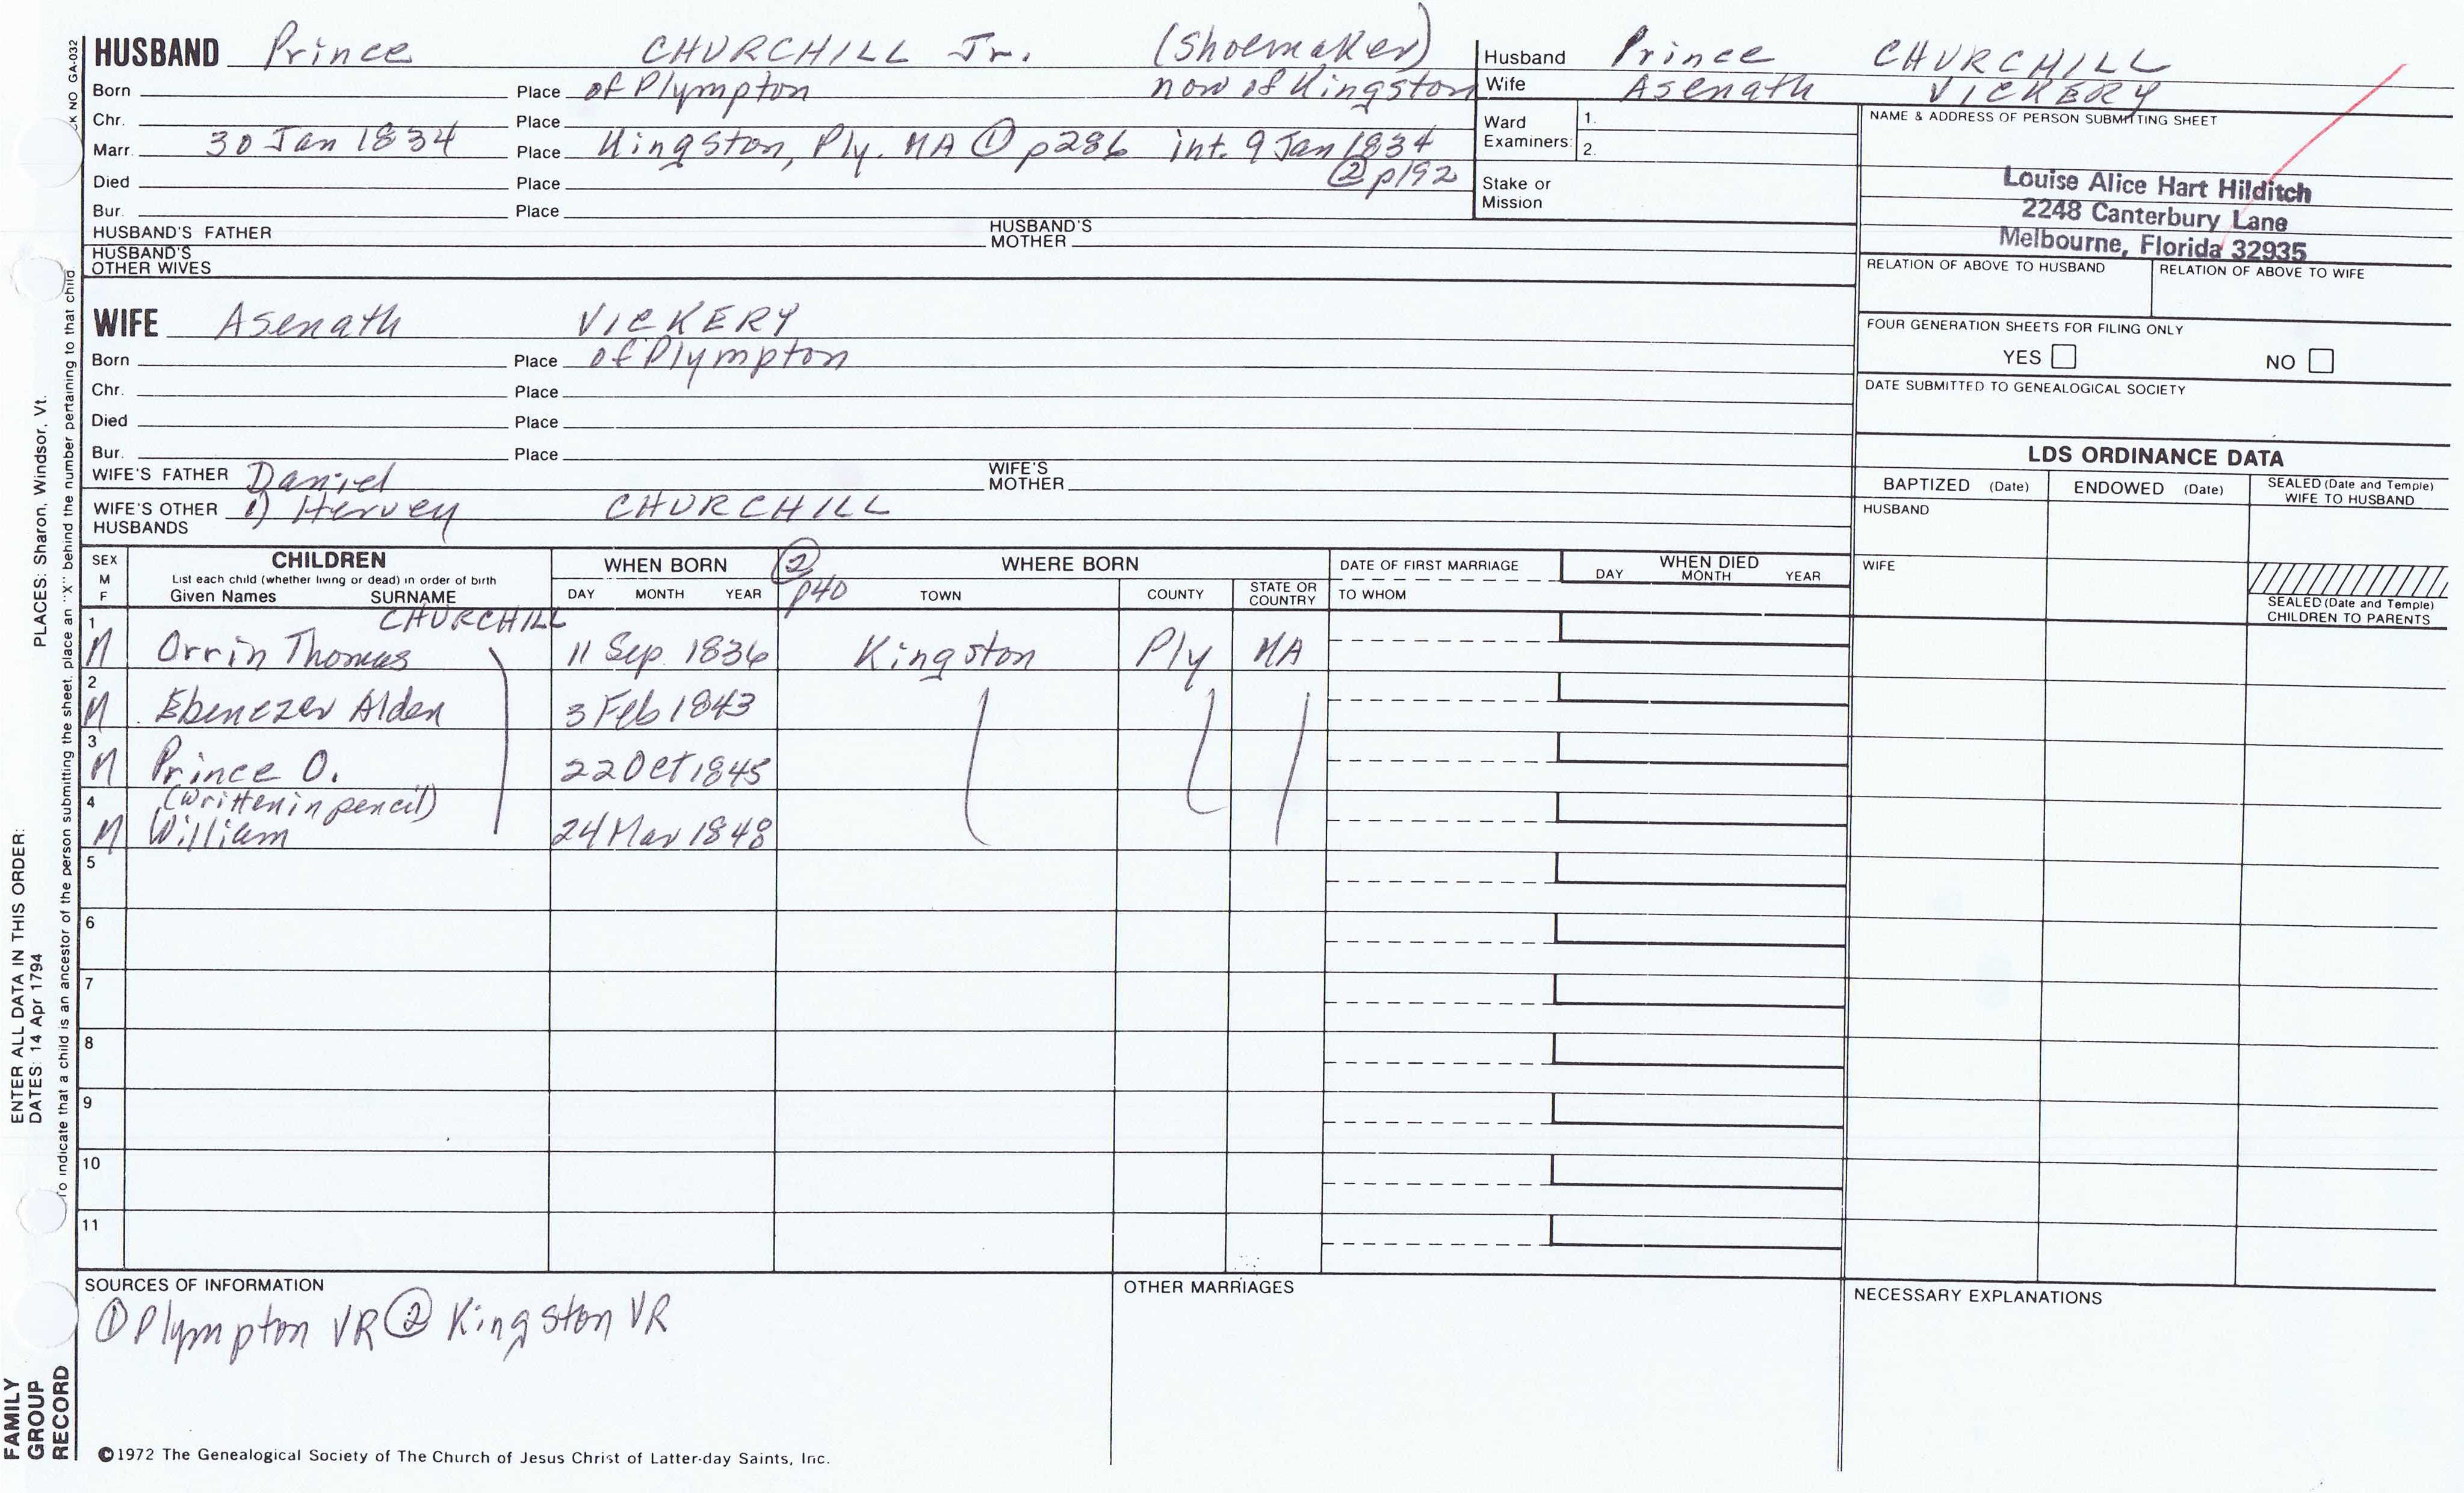 HUSBAND Prince CHURCHILL Jr. (Shoemaker)
Born Place of Plympton now of Kingston
Chr. Place
Marr. 30 Jan 1834 Place Kingston, Ply. MA ① p286 int. 9 Jan 1834
② p192
Died Place
Bur. Place
HUSBAND'S FATHER HUSBAND'S MOTHER
HUSBAND'S OTHER WIVES
Husband Prince CHURCHILL
Wife Asenath VICKERY
Ward Examiners: 1.
2.
Stake or Mission
NAME & ADDRESS OF PERSON SUBMITTING SHEET
Louise Alice Hart Hilditch
2248 Canterbury Lane
Melbourne, Florida 32935
RELATION OF ABOVE TO HUSBAND RELATION OF ABOVE TO WIFE
FOUR GENERATION SHEETS FOR FILING ONLY
YES NO
DATE SUBMITTED TO GENEALOGICAL SOCIETY
WIFE Asenath VICKERY
Born Place of Plympton
Chr. Place
Died Place
Bur. Place
WIFE'S FATHER Daniel WIFE'S MOTHER
WIFE'S OTHER HUSBANDS 1) Hervey CHURCHILL
LDS ORDINANCE DATA
BAPTIZED (Date) ENDOWED (Date) SEALED (Date and Temple) WIFE TO HUSBAND
HUSBAND
WIFE
SEALED (Date and Temple) CHILDREN TO PARENTS
SEX M F
CHILDREN
List each child (whether living or dead) in order of birth
Given Names SURNAME
WHEN BORN
DAY MONTH YEAR
② p40
WHERE BORN
TOWN COUNTY STATE OR COUNTRY
DATE OF FIRST MARRIAGE
TO WHOM
WHEN DIED
DAY MONTH YEAR
CHURCHILL
1 M Orrin Thomas 11 Sep 1836 Kingston Ply MA
2 M Ebenezer Alden 3 Feb 1843
3 M Prince O. 22 Oct 1845
(written in pencil)
4 M William 24 Mar 1848
5
6
7
8
9
10
11
SOURCES OF INFORMATION
① Plympton VR ② Kingston VR
OTHER MARRIAGES
NECESSARY EXPLANATIONS
©1972 The Genealogical Society of The Church of Jesus Christ of Latter-day Saints, Inc.
FAMILY GROUP RECORD
ENTER ALL DATA IN THIS ORDER:
DATES: 14 Apr 1794 PLACES: Sharon, Windsor, Vt.
To indicate that a child is an ancestor of the person submitting the sheet, place an "X" behind the number pertaining to that child
NO GA-032